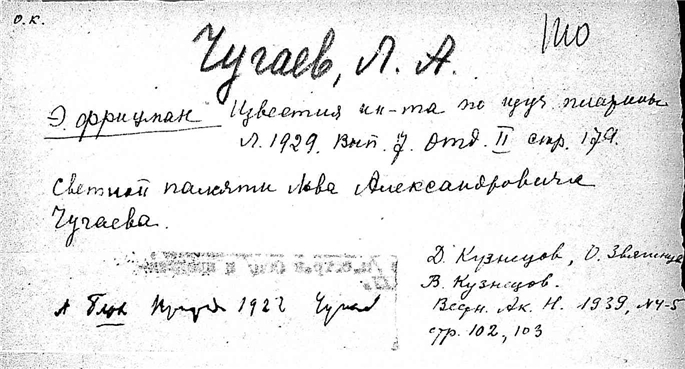 О.К.
Чугаев, Л. А.
Э. Фрицман Известия ин-та по изуч. платины
Л. 1929. Вып. 7. Отд. II стр. 179.
Светлой памяти Льва Александровича
Чугаева.
Д. Кузнецов, О. Звягинцев
В. Кузнецов.
Вестн. Ак. Н. 1939, №4-5
стр. 102, 103
1922